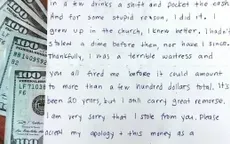 in a few drinks a shift and pocket the cash.
And for some stupid reason, I did it. I
grew up in the church, I knew better. I hadn't
stolen a dime before then, nor have I since.
Thankfully, I was a terrible waitress and
you all fired me before it could amount
to more than a few hundred dollars total. It's
been 20 years, but I still carry great remorse.
I am very sorry that I stole from you. Please
accept my apology + this money as a
100
100
100